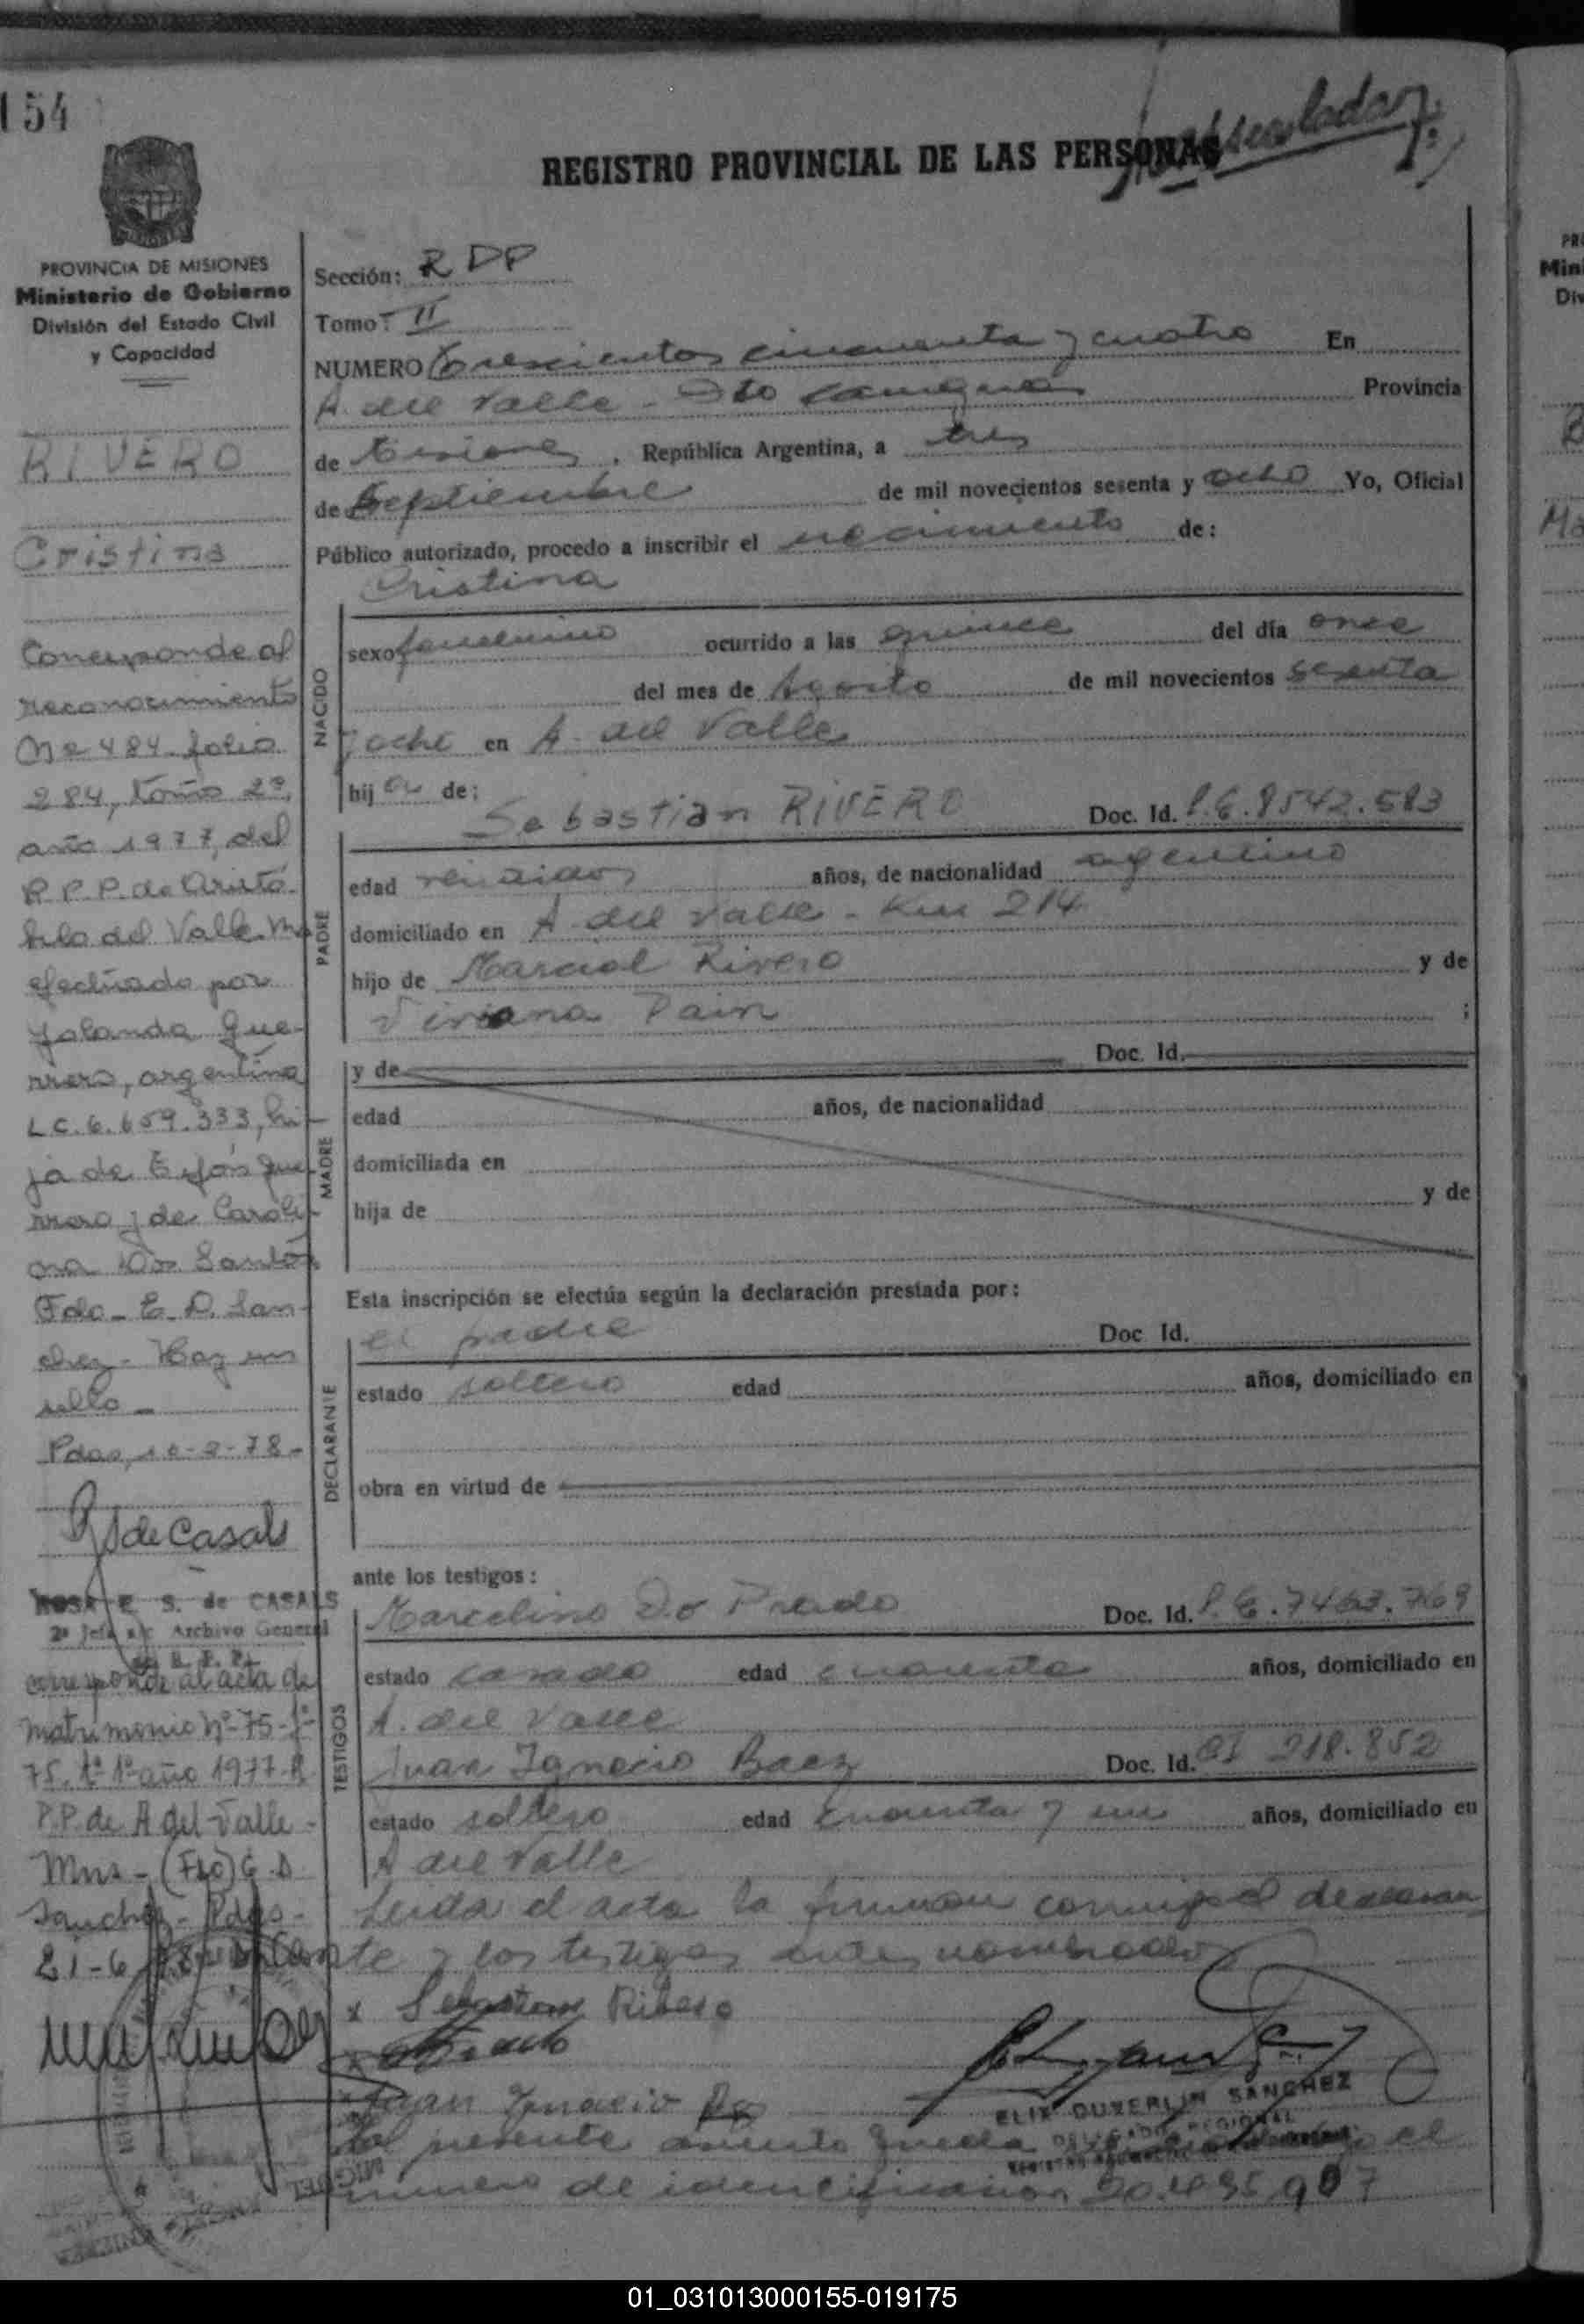 154
REGISTRO PROVINCIAL DE LAS PERSONAS
PROVINCIA DE MISIONES
Ministerio de Gobierno
División del Estado Civil
y Capacidad
RIVERO
Cristina
Corresponde al
reconocimiento
Nº 484 folio
284, Tomo 2º,
año 1977, del
R.P.P. de Aristó-
bulo del Valle. Mns
efectuado por
Yolanda Gue-
rrero, argentina
L.C. 6.659.333, hi-
ja de Gue-
rrero y de Caroli-
na Dos Santos
Fdo - E. D. San-
chez - Hay un
sello -
Pdas, 10-2-78-
R S de Casals
ROSA E. S. de CASALS
2ª Jefa a/c Archivo General
R. P. P.
corresponde al acta de
matrimonio Nº 75 - fº
75. Tº 1º año 1977. R.
P.P. de A del Valle -
Mns - (Fdo) E. D
Sanchez - Pdas -
21-6-78
Sección: R D P
Tomo: II
NUMERO Trescientos cincuenta y cuatro En
A. del Valle - Dto Cainguas Provincia
de Misiones, República Argentina, a tres
de Septiembre de mil novecientos sesenta y ocho Yo, Oficial
Público autorizado, procedo a inscribir el nacimiento de:
Cristina
NACIDO
sexo femenino ocurrido a las quince del día once
del mes de Agosto de mil novecientos sesenta
y ocho en A. del Valle
hija de:
Sebastian RIVERO Doc. Id. L.E. 8542.583
PADRE
edad veintidos años, de nacionalidad argentino
domiciliado en A. del Valle - Km 214
hijo de Marcial Rivero y de
Viviana Pain ;
MADRE
y de Doc. Id.
edad años, de nacionalidad
domiciliada en
hija de y de
Esta inscripción se efectúa según la declaración prestada por:
DECLARANTE
el padre Doc Id.
estado soltero edad años, domiciliado en
obra en virtud de
ante los testigos:
TESTIGOS
Marcelino Do Prado Doc. Id. L.E. 7463.769
estado casado edad cuarenta años, domiciliado en
A. del Valle
Juan Ignacio Baez Doc. Id. CI 218.852
estado soltero edad cuarenta y un años, domiciliado en
A del Valle
Leida el acta la firman conmigo el declaran
te y los testigos antes nombrados
x Sebastian Ribero
Juan Ignacio
ELIX DUVERLIN SANCHEZ
DELEGADO REGIONAL
El presente asiento queda el
numero de identificacion 20.495.907
01_031013000155-019175